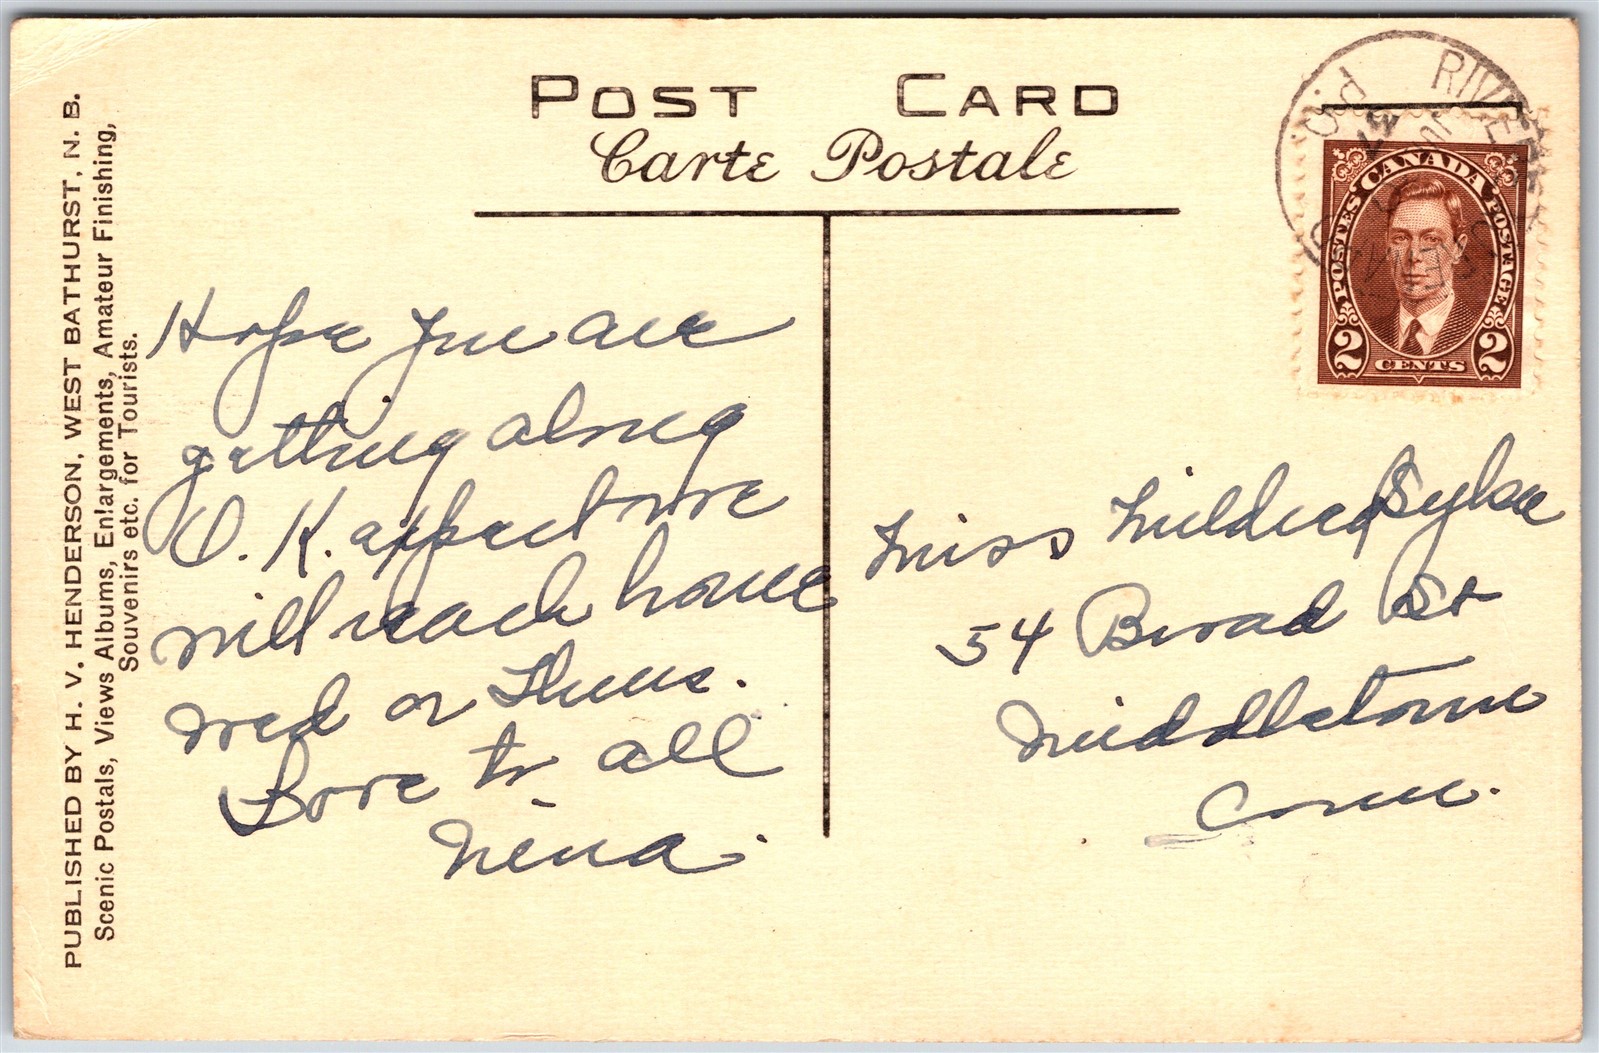 POST CARD
Carte Postale
PUBLISHED BY H. V. HENDERSON, WEST BATHURST, N. B.
Scenic Postals, Views Albums, Enlargements, Amateur Finishing,
Souvenirs etc. for Tourists.
RIVER
CANADA
POSTES POSTAGE
2 CENTS 2
Hope you are
getting along
O. K. expect we
will reach home
Wed or Thurs.
Love to all
Nina.
Miss Mildred
54 Broad St
Middletown
Conn.